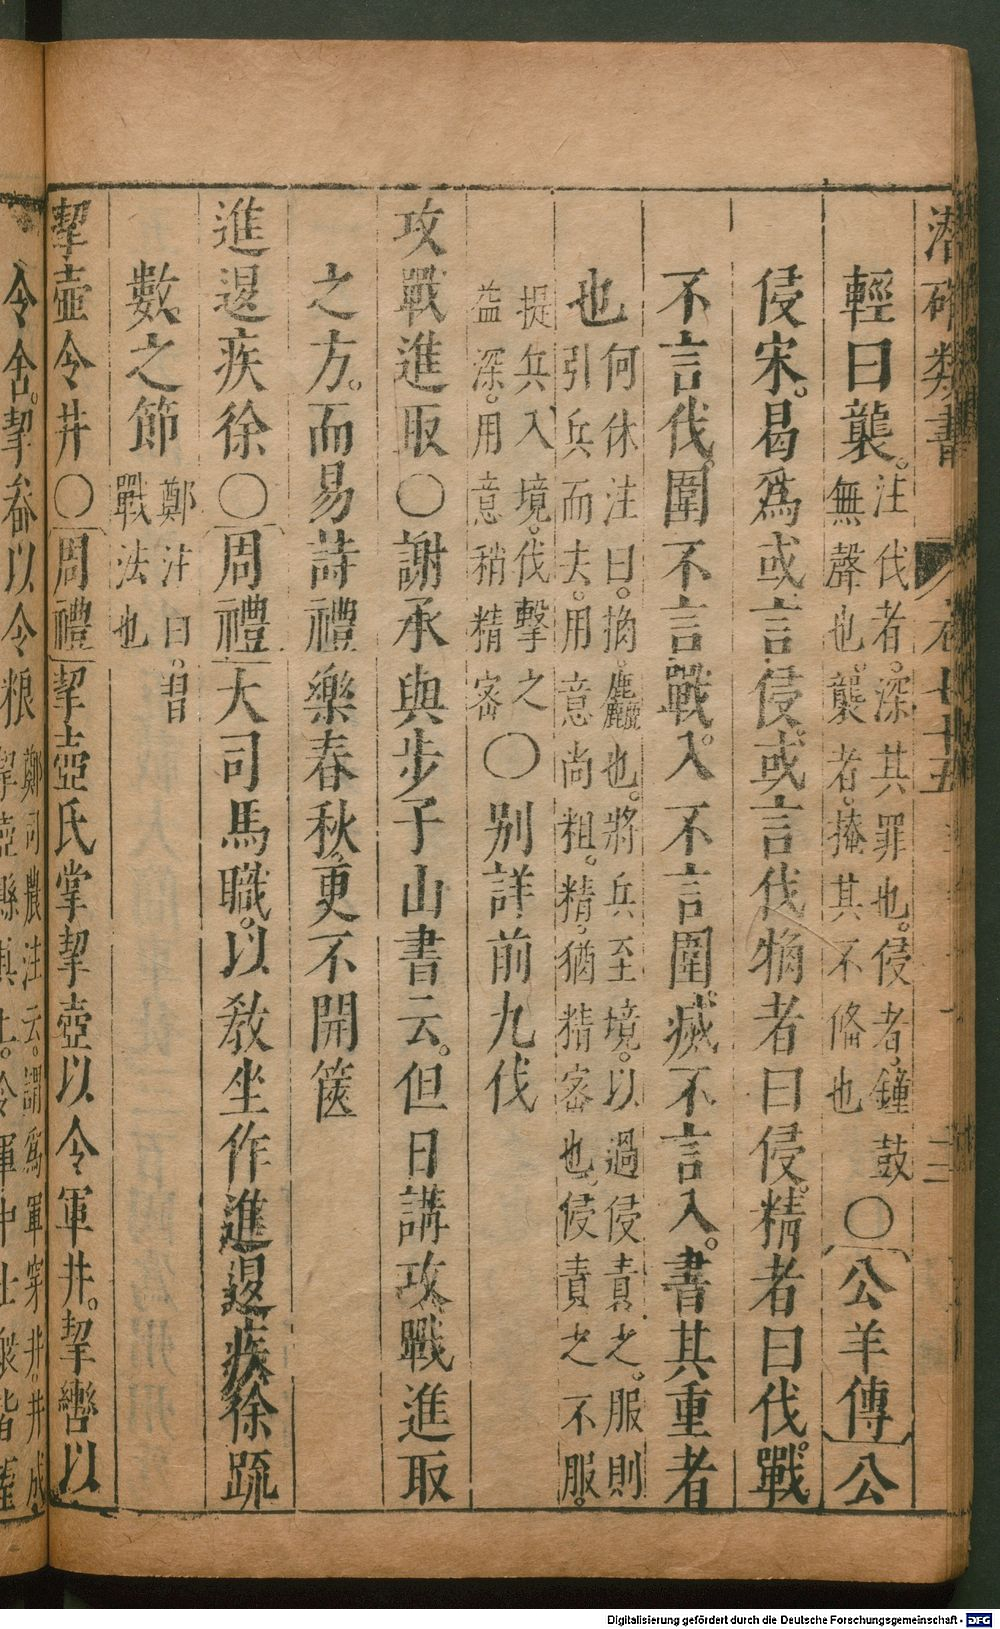 潛確類書 卷七十五 二
輕曰襲。注伐者。深其罪也。侵者。鐘鼓
無聲也。襲者。掩其不俻也〇公羊傳公
侵宋。曷爲或言侵。或言伐。觕者曰侵。精者曰伐。戰
不言伐。圍不言戰。入不言圍。滅不言入。書其重者
也何休注曰。觕。麤也。將兵至境。以過侵責之。服則
引兵而去。用意尚粗。精。猶精密也。侵責之不服。
提兵入境。伐擊之
益深。用意稍精密〇別詳前九伐
攻戰進取〇謝承與步子山書云。但日講攻戰進取
之方。而易詩禮樂春秋。更不開篋
進退疾徐〇周禮大司馬職。以敎坐作進退疾徐疏
數之節鄭注曰。習
戰法也
挈壺令井〇周禮挈壺氏掌挈壺以令軍井。挈轡以
令舍。挈畚以令粮鄭司農注云。謂爲軍穿井。井成
挈壺縣其上。令軍中士衆皆